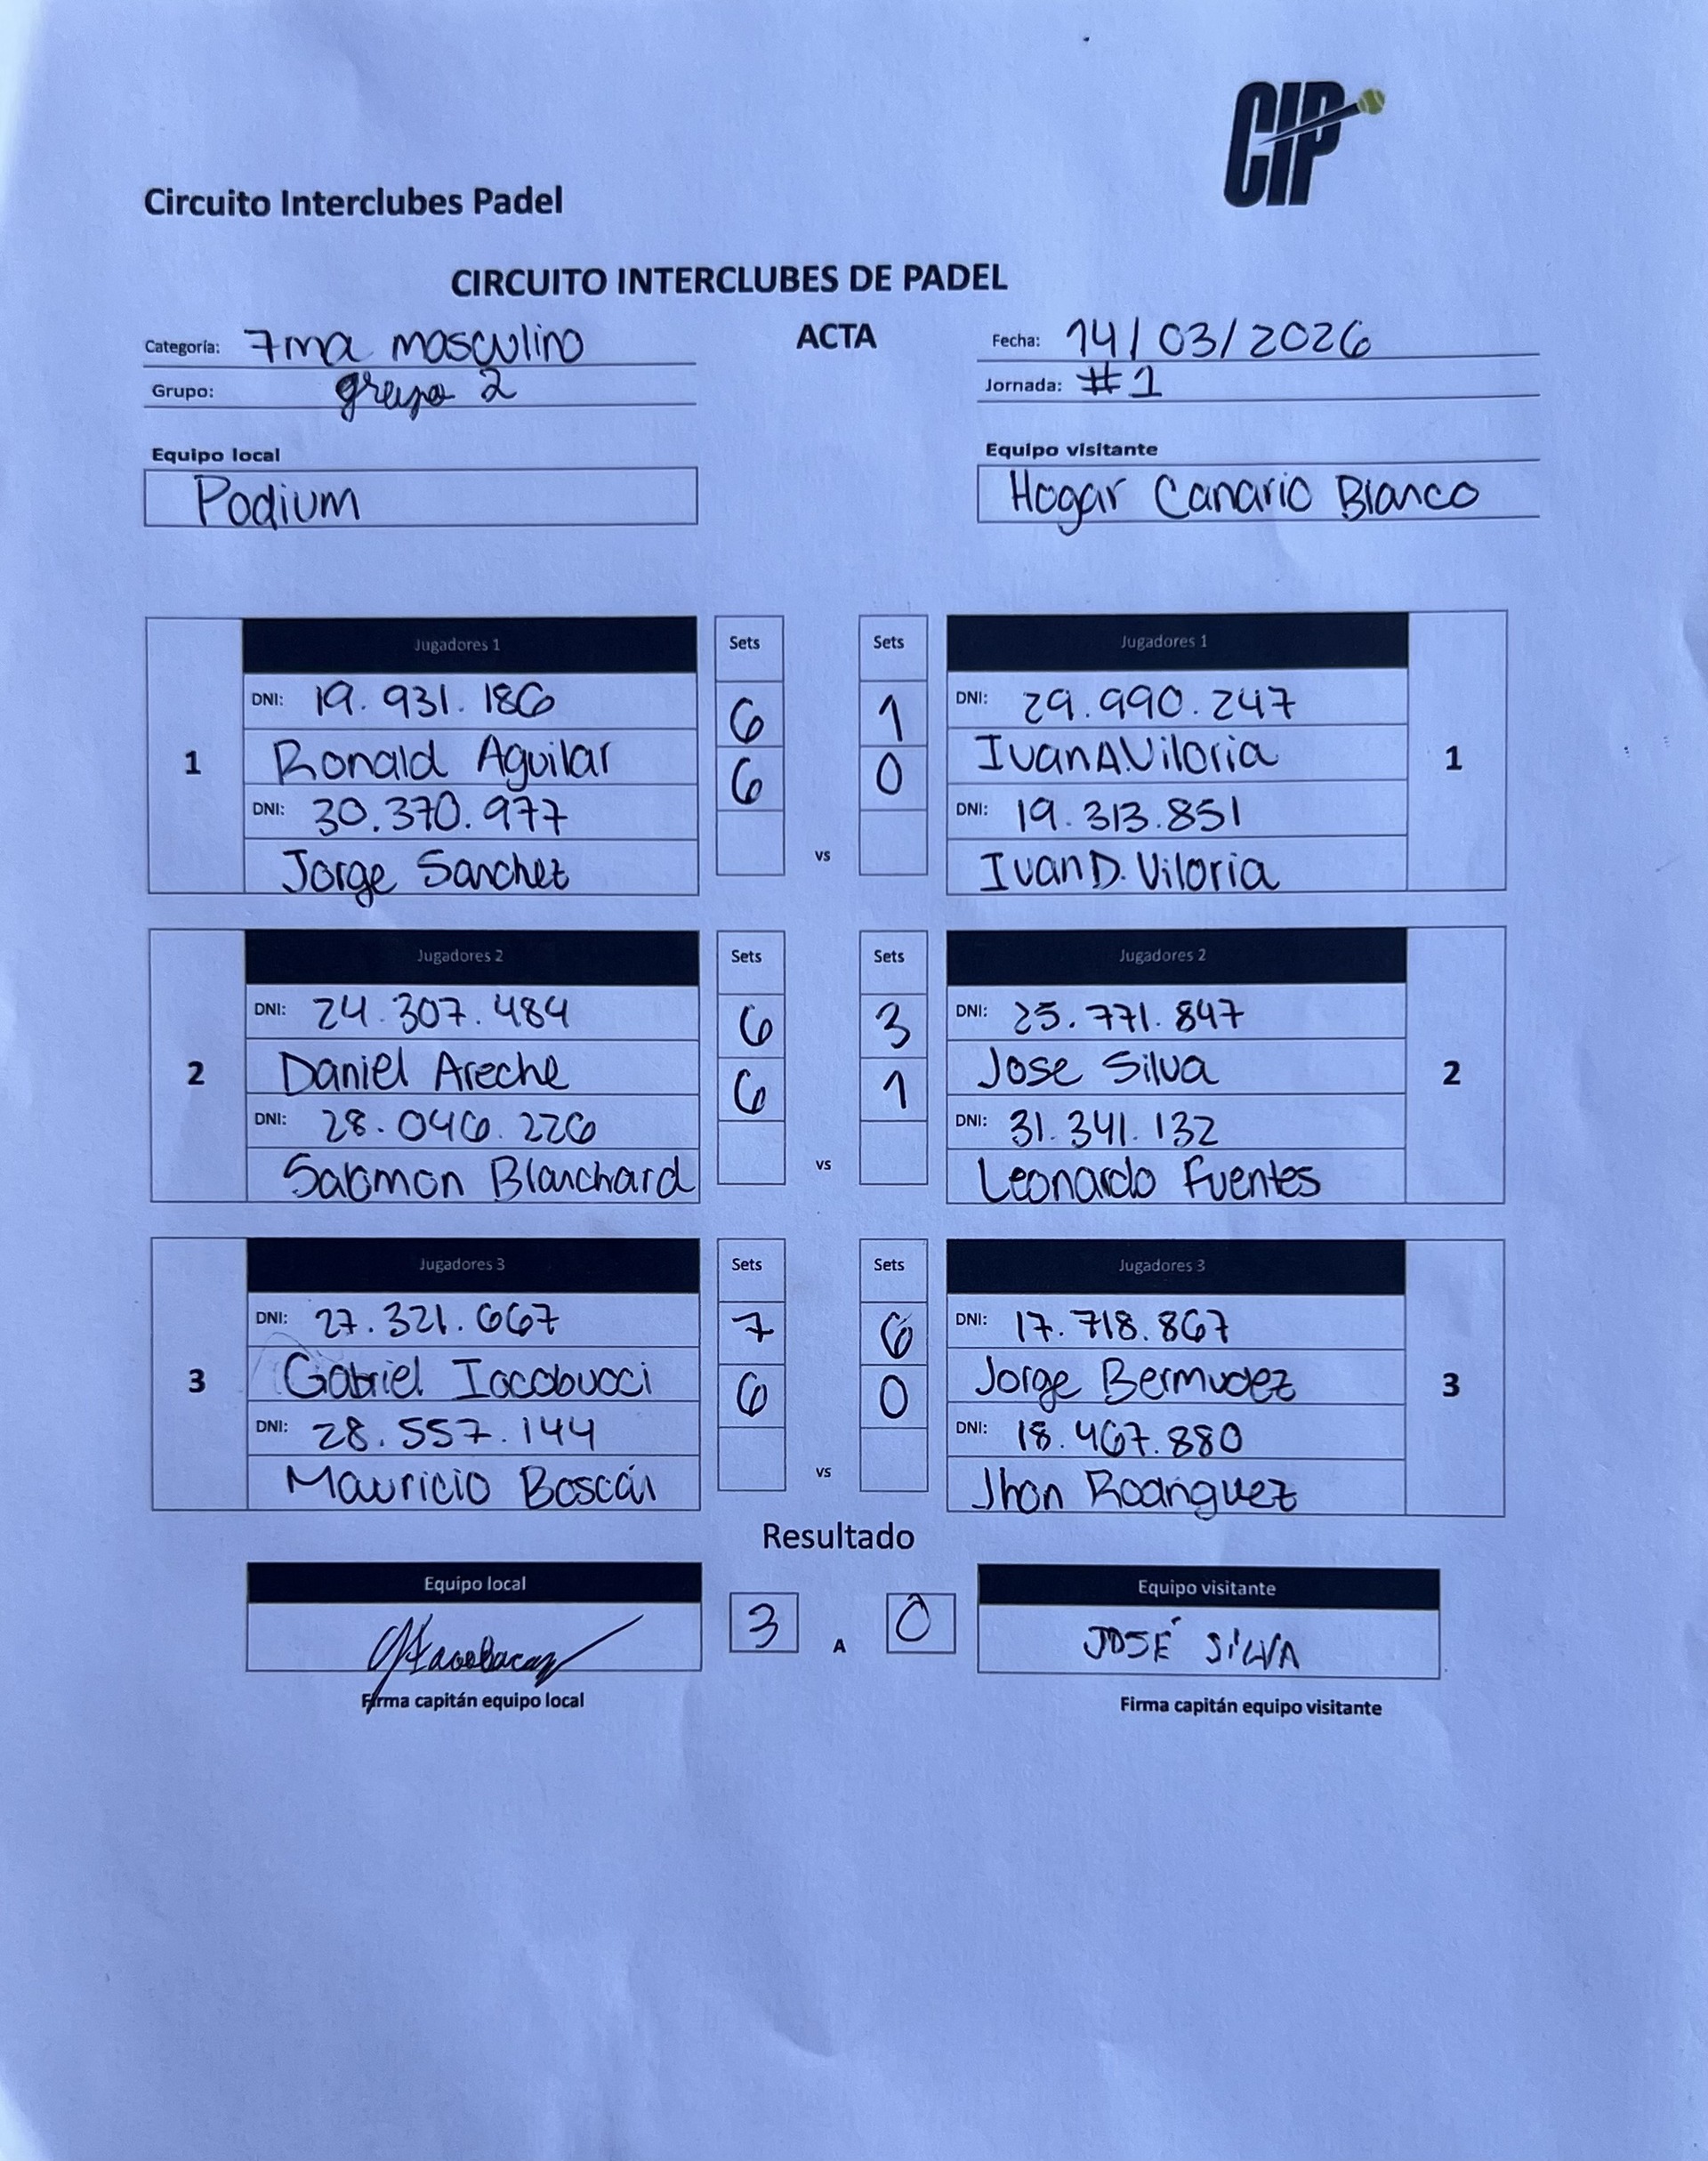 CIP
Circuito Interclubes Padel
CIRCUITO INTERCLUBES DE PADEL
Categoría: 7ma masculino
ACTA
Fecha: 14/03/2026
Grupo: grupo 2
Jornada: #1
Equipo local
Equipo visitante
Podium
Hogar Canario Blanco
Jugadores 1 Sets Sets Jugadores 1
DNI: 19.931.186 6 1 DNI: 29.990.247
1 Ronald Aguilar 6 0 Ivan A. Viloria 1
DNI: 30.370.977 DNI: 19.313.851
Jorge Sanchez vs Ivan D. Viloria
Jugadores 2 Sets Sets Jugadores 2
DNI: 24.307.484 6 3 DNI: 25.771.847
2 Daniel Areche 6 1 Jose Silva 2
DNI: 28.046.226 DNI: 31.341.132
Salomon Blanchard vs Leonardo Fuentes
Jugadores 3 Sets Sets Jugadores 3
DNI: 27.321.667 7 6 DNI: 17.718.867
3 Gabriel Iacobucci 6 0 Jorge Bermudez 3
DNI: 28.557.144 DNI: 18.467.880
Mauricio Boscán vs Jhon Rodriguez
Resultado
Equipo local Equipo visitante
3 A 0 JOSÉ SILVA
Firma capitán equipo local Firma capitán equipo visitante